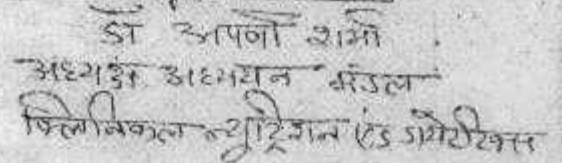 डॉ अपर्णा शर्मा
अध्यक्ष अध्ययन मंडल
क्लिनिकल न्यूट्रिशन एंड डायेटीटिक्स